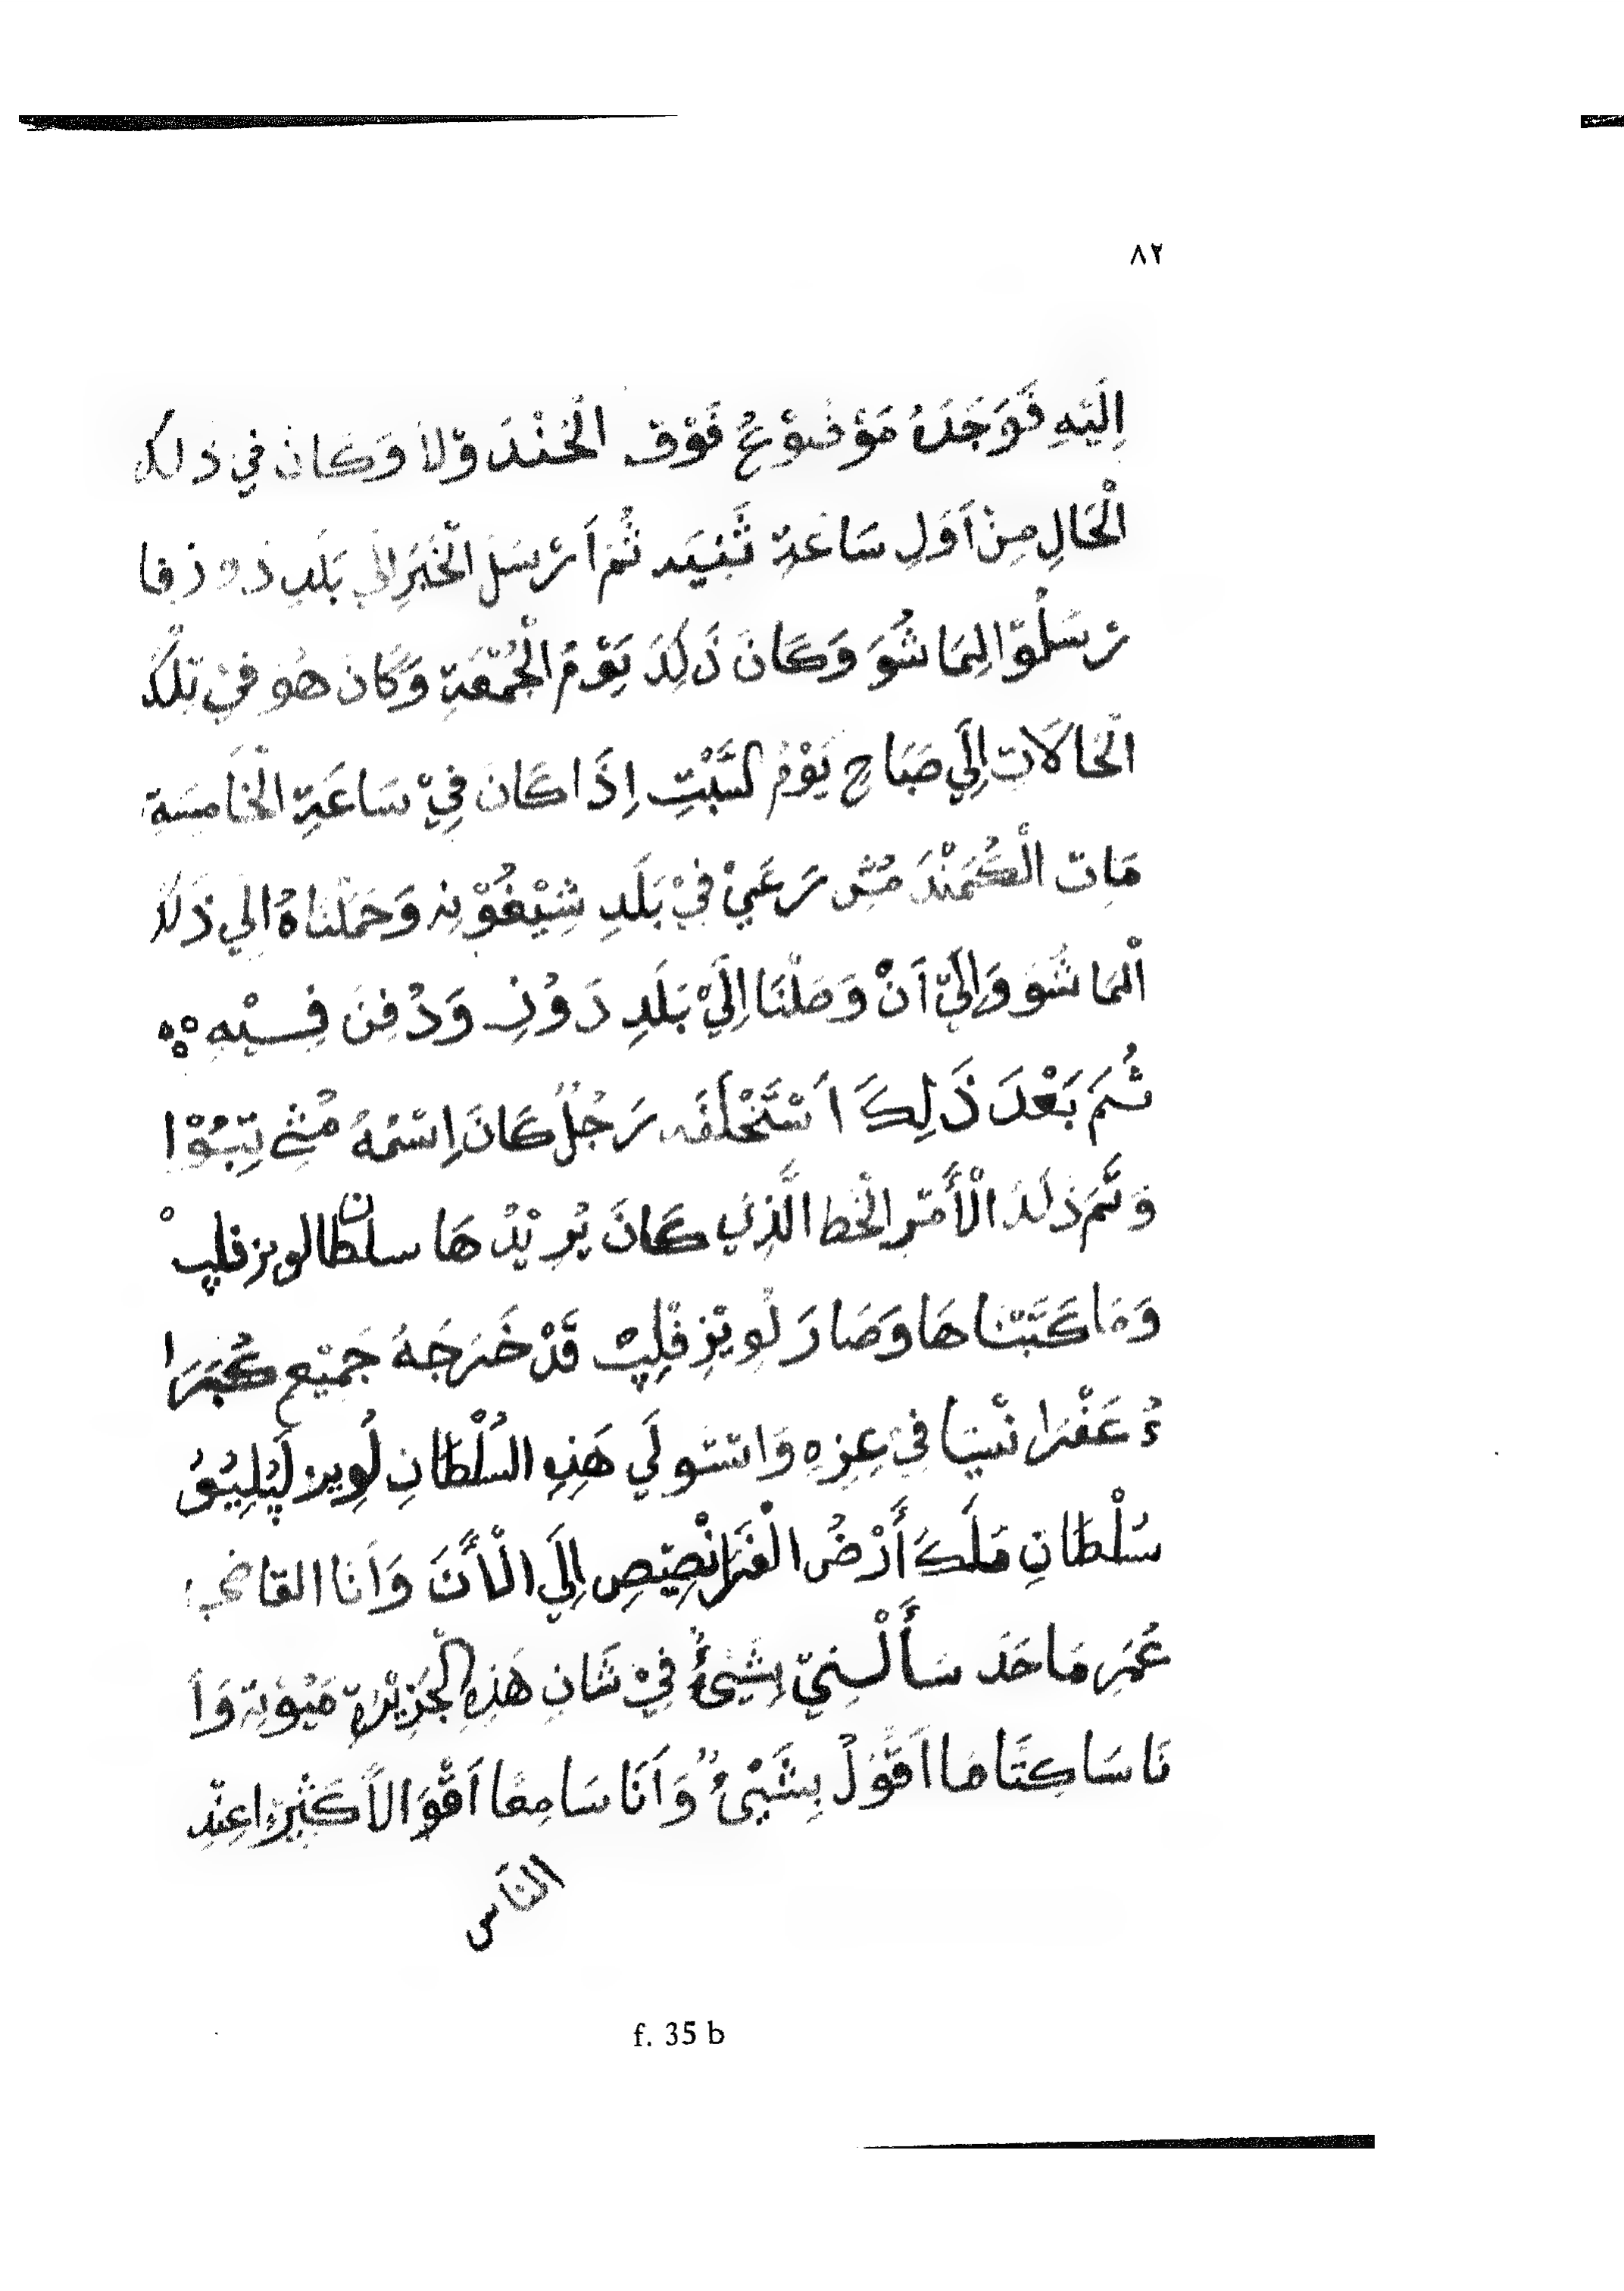 ٨٢
اِلَيْهِ فَوَجَدَهُ مَوْضُوْعٌ فَوْقَ الْخُنْدَ وْلاَ وَكَانَ فِي ذَلِكَ
الْحَالِ مِنْ اَوَلِ سَاعَةِ ثُمَ اَرْسَلَ الْخَبَرِ اِلَي بَلَدِ
رْسَلُوْا لِمَاشُوَ وَكَانَ ذَلِكَ يَوْمُ الْجُمْعَةِ وَكَانَ هُوَ فِيْ تِلْكَ
الْحَالَاتِ اِلَي صَبَاحِ يَوْمُ لسَّبْتِ اِذَا كَانَ فِيْ سَاعَةِ الْخَامِسَةِ
مَاتَ الْكُمَنْدَ مُسْ رَعَيْ فِيْ بَلَدِ شِيْغُوْنِ وَحَمَلْنَاهُ اِلَي ذَلكَ
الْمَاشُوَ وَاِلَيّ اَنْ وَصَلْنَا اِلَيْ بَلَدِ دَوُنِ وَدُفِنَ فِسيْهِ
ثُمَ بَعْدَ ذَلِكَ اَسْتَخْلَفَه رَجُلٌ كَانَ اِسْمُهُ مُشِيْ تِبُوْا
وَتَمَ ذَلَكَ الْأَمْرِ الْخَط الَّذِي كَانَ يُرِيْدُ هَا سلطان لويز فلپْ
وَمَا كَتَبْنَا هَا وَصَارَ لُويْزِ فْلِپْ قَدْ خَرَجَهُ جَمِيْعِ كُبَرَا
ءُ عَفْرَا نْسِيَا فِيْ عِزِهِ وَاسْتَولَي هَذِهِ السُلْطَانِ لُويِز لَپُلِيُوُ
سُلْطَانِ مَلَكَ أَرْضُ الْفَرَانْصِيْصِ اِلَي الْأَنَ وَاَنَا القَاضِي
عُمَرِ مَا حَدَ سَأَلْسنِيْ بِشَيْئٌ فِيْ شَانِ هَذِهِ الْجَزِيْرَةِ مَيُوْتِه وَاَ
نَا سَاكِتًا مَا اَقُوْلُ بِشَيْئٌ وَاَنَا سَامِعًا اَقْوَالاً كَثِيْرًا عِنْدِ
النَاس
f. 35 b